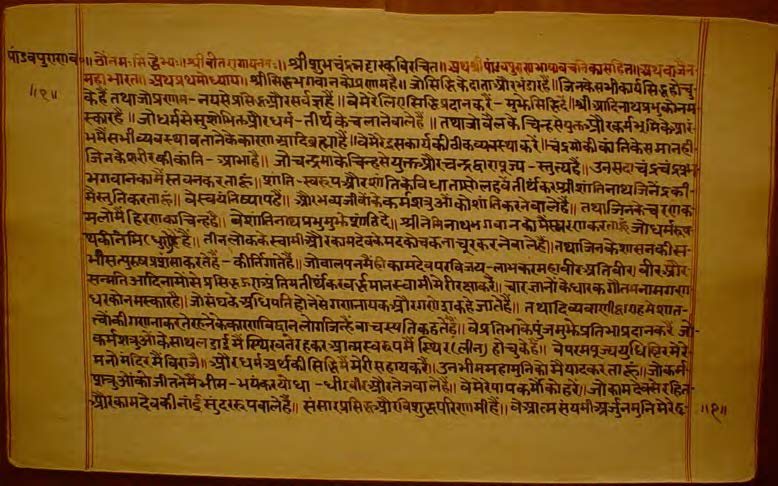 पांडवपुराणव॰
॥१॥
॥ॐनमःसिद्धेभ्यः॥श्रीवीतरागायनमः॥श्रीशुभचंद्रभट्टारकविरचित॥अथश्रीपांडवपुराणभाषावचनिकासहित॥अथवाजैन-
महाभारत॥अथप्रथमोध्याय॥श्रीसिद्धभगवानकोप्रणामहै॥जोसिद्धिकेदाताऔरभंडारहैं॥जिनकेसभीकार्यसिद्धहोचु-
केहैंतथाजोप्रणाम-नयसेप्रसिद्धऔरसर्वज्ञहैं॥वेमेरेलिएसिद्धिप्रदानकरें-मुझेसिद्धिदें॥श्रीआदिनाथप्रभुकोनम-
स्कारहै॥जोधर्मसेसुशोभितऔरधर्म-तीर्थकेचलानेवालेहैं॥तथाजोबैलकेचिन्हसेयुक्तऔरकर्मभूमिकेप्रारं-
भमेंसभीव्यवस्थाबतानेकेकारणआदिब्रह्माहैं॥वेमेरेइसकार्यकीठीकव्यवस्थाकरें॥चंद्रमाकीकांतिकेसमानही
जिनकेशरीरकीकान्ति-आभाहै॥जोचन्द्रमाकेचिन्हसेयुक्तऔरचन्द्रद्वारापूज्य-स्तुत्यहैं॥उनसदाचंद्रचंद्रप्रभ
भगवानकामैंस्तवनकरताहूं॥शान्ति-स्वरूपऔरशांतिकेविधातासोलहवेंतीर्थंकरश्रीशांतिनाथजिनेंद्रकी
मैंस्तुतिकरताहूं॥वेस्वयंनिष्पापहैं॥औरभव्यजीवोंकेकर्मशत्रुओंकोशांतिकरनेवालेहैं॥तथाजिनकेचरणक-
मलोंमेंहिरणकाचिन्हहै॥वेशांतिनाथप्रभुमुझेशांतिदें॥श्रीनेमिनाथभगवानकोमैंस्मरणकरताहूंजोधर्मरूपर-
थकीनेमिहैं॥तीनलोककेस्वामीऔरकामदेवकेमदकोचकनाचूरकरनेवालेहैं॥तथाजिनकेशासनकीस-
भीसत्पुरुषप्रशंसाकरतेहैं-कीर्तिगातेहैं॥जोबालपनमेंहीकामदेवपरविजय-लाभकरमहावीर-प्रतिवीरवीरऔर
सन्मतिआदिनामोंसेप्रसिद्धहुएअन्तिमतीर्थंकरवर्द्धमानस्वामीमेरीरक्षाकरें॥चारज्ञानोंकेधारकगौतमनामगण-
धरकोनमस्कारहै॥जोसंघकेअधिपतिहोनेसेगणनायकऔरगणेंद्रकहेजातेहैं॥तथादिव्यवाणीद्वाराहमेशात-
त्त्वोंकीगणनाकरतेरहनेकेकारणविद्वानलोगजिन्हेंवाचस्पतिकहतेहैं॥वेप्रतिभाकेपुंजमुझेप्रतिभाप्रदानकरेंजो-
कर्मशत्रुओंकेसाथलड़ाईमेंस्थिरवनेरहकरआत्मस्वरूपमेंस्थिर(लीन)होचुकेहैं॥वेपरमपूज्ययुधिष्ठिरमेरे-
मनोमंदिरमेंविराजें॥औरधर्मअर्थकीसिद्धिमेंमेरीसहायकरें॥उनभीममहामुनिकोमैंयादकरताहूं॥जोकर्म-
शत्रुओंकोजीतनेमेंभीम-भयंकरयोधा-धीरवीरऔरतेजवालेहैं॥वेमेरेपापकर्मोंकोहरें॥जोकामदेवसेरहित-
औरकामदेवकीनांईसुंदररूपवालेहैं॥संसारप्रसिद्धऔरविशुद्धपरिणामीहैं॥वेआत्मसंयमीअर्जुनमुनिमेरेहृ-
॥१॥